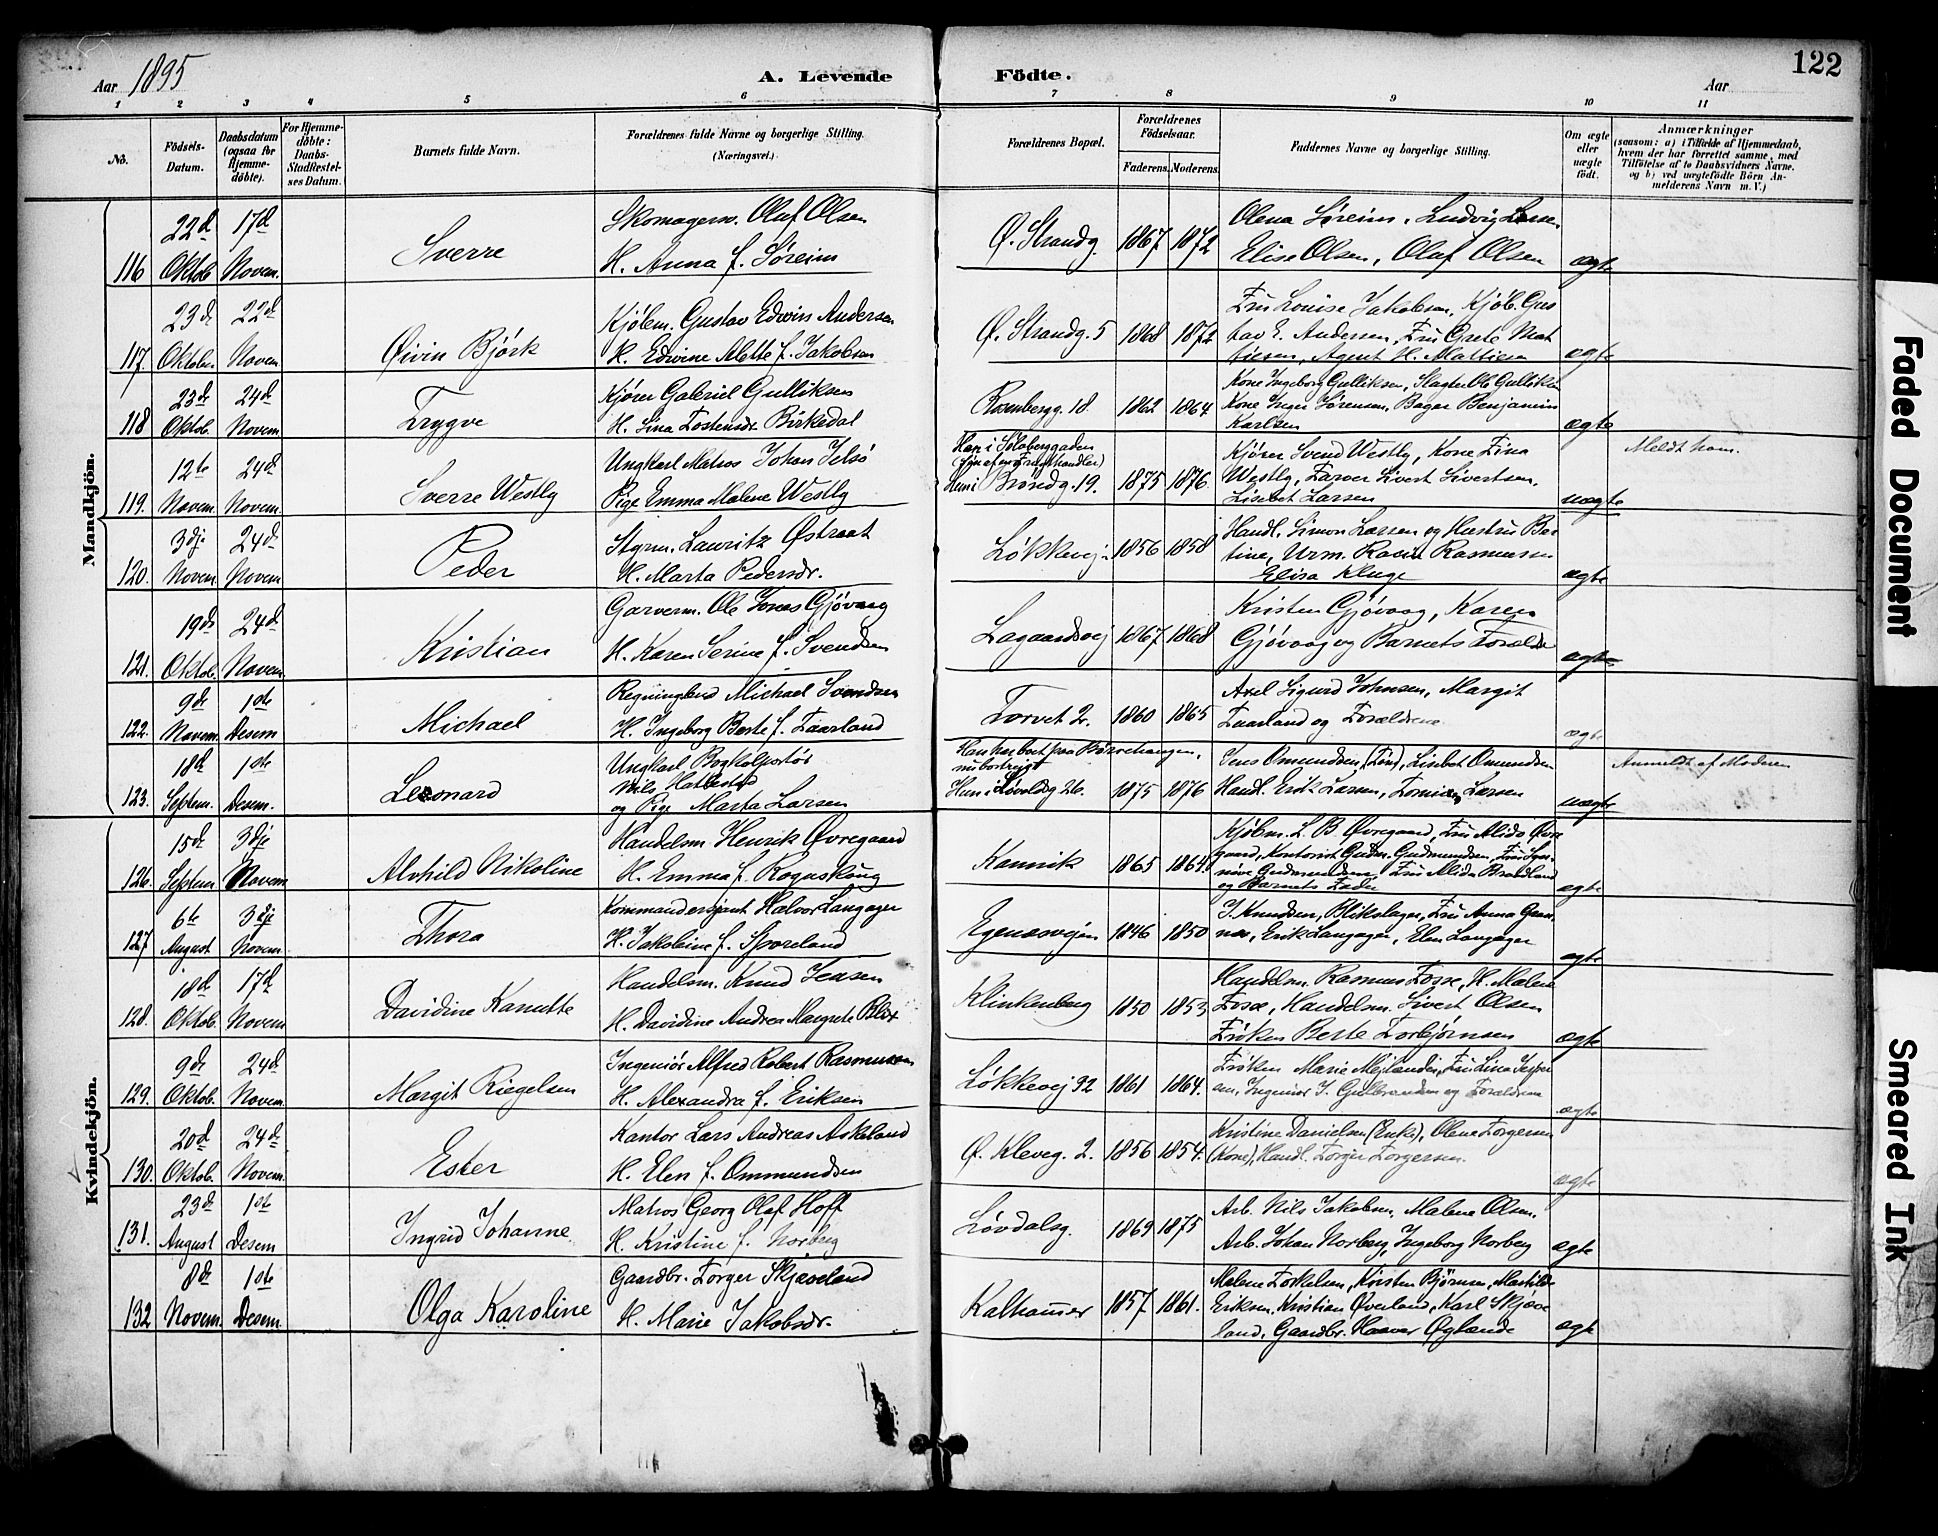 122
Aar 1895
A. Levende Födte.
Aar
1 2 3 4 5 6 7 8 9 10 11
No.
Födsels-Datum.
Daabsdatum (ogsaa for Hjemmedöbte).
For Hjemmedöbte: Daabs-Stadfæstelses Datum.
Barnets fulde Navn.
Forældrenes fulde Navne og borgerlige Stilling.
(Næringsvei.)
Forældrenes Bopæl.
Forældrenes Födselsaar.
Faderens. Moderens.
Faddernes Navne og borgerlige Stilling.
Om ægte eller uægte födt.
Anmærkninger
(saasom: a) i Tilfælde af Hjemmedaab,
hvem der har forrettet samme, med
Tilföielse af to Daabsvidners Navne,
og b) ved uægtefödte Börn An-
melderens Navn m. V.)
Mandkjön.
116 22d Oktob. 17d Novem. Sverre
Skomagersv. Oluf Olsen
H. Anna f. Søreim
Ø. Strandg. 1867 1872
Olena Søreim, Ludvig Larsen
Elise Olsen, Olaf Olsen
ægte
117. 23d Oktober 22d Novem Øivin Björk
Kjøbm. Gustav Edwin Andersen
H. Edvine Alette f. Jakobsen
Ø. Strandg. 5 1868 1872
Fru Louise Jakobsen, Kjøb. Gus
tav E. Andersen, Fru Grete Mat
tiesen, Agent H. Mattiesen
ægte
118 23d Oktob. 24d Novem Trygve
Kjører Gabriel Gulliksen
H. Sina Tostensdr Birkedal
Rosenbergg. 18. 1862 1864
Kone Ingeborg Gulliksen, Slagter Ole Gulliksen
Kone Inger Sørensen, Bager Benjamin
Karlsen
ægte
119. 12te Novem. 24d Novem. Sverre Westly
Ungkarl Matros Johan Jelsø
Pige Emma Malene Westly
Han i
Hun i Brøndg. 19. 1875 1876
Kjører Svend Westly, Kone Lina
Westly, Farver Sivert Sivertsen,
Lisebet Larsen
uægte
Meldt ham.
120. 3dje Novem. 24d Novem Peder
Styrm. Lauritz Østraat
H. Marta Pedersdr.
Løkkevej 1856 1858
Handl. Simon Larsen og Hustru Ber
tine, Urm. Rasmussen
Elisa Kluge
ægte
121. 19de Oktob. 24d Novem. Kristian
Garverm. Ole Jonas Gjövaag
H. Karen Serine f. Svendsen
Lagaardsvej 1867 1868
Kristen Gjövaag, Karen
Gjövaag og Barnets Forældre
ægte
122. 9de Novem. 1ste Desem Michael
Regningsbud Michael Svendsen
H. Ingeborg Berte f. Faarland
Torvet 2. 1860 1865
Axel Sigurd Johnsen, Margit
Faarland og Forældrene
ægte
123. 18d Septem. 1ste Desem. Leonard
Ungkarl Bogkolportør
Nils Hatlestad
og Pige Marta Larsen
Hun i Løvoldsg 26. 1875 1876
Jens Omundsen, Lisebet Omundsen
Handl. Erik Larsen, Larsen
uægte
Anmeldt af Moderen
Kvindekjön.
126. 15de Septem 3dje Novem Alvhild Nikoline
Handelsm Henrik Øvregaard
H. Emma f. Rognskoug
Kannik 1865 1864.
Kjøbm. L. B. Øvregaard, Fru Alida Øvre
gaard, Kontorist Gudm. Gudmundsen, Fru Syn-
nøve Gudmundsen
og Barnets Fader
ægte
127 6te August 3dje Novem. Thora
Kommandersjant Halvor Langager
H. Jakobine f. Sporeland
Egenæsvejen 1846 1850
J. Knudsen, Blikslager, Fru Anna
Erik Langager, Elen Langager
ægte
128. 18d Oktob. 17d Novem Davidine Kanutte
Handelsm. Knud Jensen
H. Davidine Andrea Margrete Blix
Klinkenberg 1850 1853
Handelsm. Rasmus Fosse, H. Malene
Fosse, Handelsm. Sivert Olsen
Frøken Berte Torbjørnsen
ægte
129. 9de Oktob. 24d Novem. Margit Riegelsen
Ingeniör Alfred Robert Rasmussen
H. Alexandra f. Eriksen
Løkkevej 32 1861 1864.
Frøken Marie Mejlander, Fru Lina Jesper
sen, Ingeniør J. Gulbrandsen og Forældrene
ægte
130. 20d Oktob. 24de Novem. Ester
Kantor Lars Andreas Askeland
H. Elen f. Ommundsen
Ø. Kleveg. 2. 1856 1854.
Kristine Danielsen (Enke), Olene Torgersen
(Kone), Handl. Torger Torgersen.
ægte
131. 23d August 1ste Desem Ingrid Johanne
Matros Georg Olaf Hoff
H. Kristine f. Norberg
Løvdalsg. 1869 1875
Arb. Nils Jakobsen, Malene Olsen.
Arb. Johan Norberg, Ingeborg Norberg
ægte
132 8de Novem. 1ste Desem. Olga Karoline
Gaardbr. Torger Skjæveland
H. Marie Jakobsdr.
Kalhammer 1857 1861.
Malene Torkelsen, Kirsten Bjørnsen, Martilde
Eriksen, Kristian Øverland, Karl Skjæve
land, Gaardbr. Haaver Øglænde
ægte
Faded Document
Smeared Ink